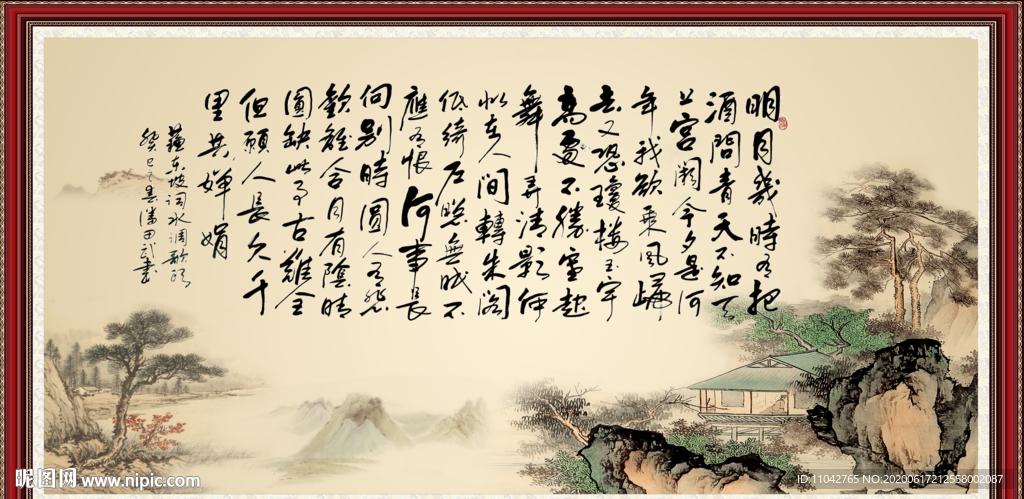 明月幾時有把
酒問青天不知天
上宮闕今夕是何
年我欲乘風歸
去又恐瓊樓玉宇
高處不勝寒起
舞弄清影何
似在人間轉朱閣
低綺户照無眠不
應有恨何事長
向别時圓人有悲
歡離合月有陰晴
圓缺此事古難全
但願人長久千
里共嬋娟
蘇东坡词水调歌頭
癸巳之春潘田武書
昵图网 www.nipic.com
ID:11042765 NO:20200617212558002087